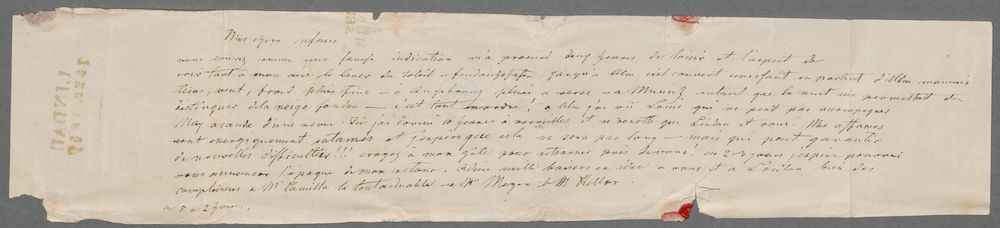 Mes chers enfans
vous saurez comme une fausse indication m'a procuré deux heures de loisir et l'espoir de
voir tout à mon aise le lever du soleil jusqu'à Ulm ciel couvert en partant d'Ulm mauvais
tems, vent, froid pluie fine — à Augsbourg pluie a verse — a Munic autant que la nuit me permettait de
distinguer de la neige fondue — c'est tout en ordre! a Ulm j'ai vu Louis qui ne peut pas accompagner
May a cause d'une revue. Ici j'ai dormi 10 heures à merveilles et ne regrette que Lindau et vous! Mes affaires
sont energiquement entamés et j'espère que cela ne sera pas long — mais qui peut garantir
de nouvelles difficultés!!! croyez à mon zèle pour retourner près de vous! en 2-3 jours j'espère pouvoir
vous annoncer l'epoque de mon retour. Adieu mille baisers en idée a vous et a Lindau bien des
complimens a Mlle Camilla — Mr Meyer & Mr Keller
a 5 a 2 jours.
LINDAU